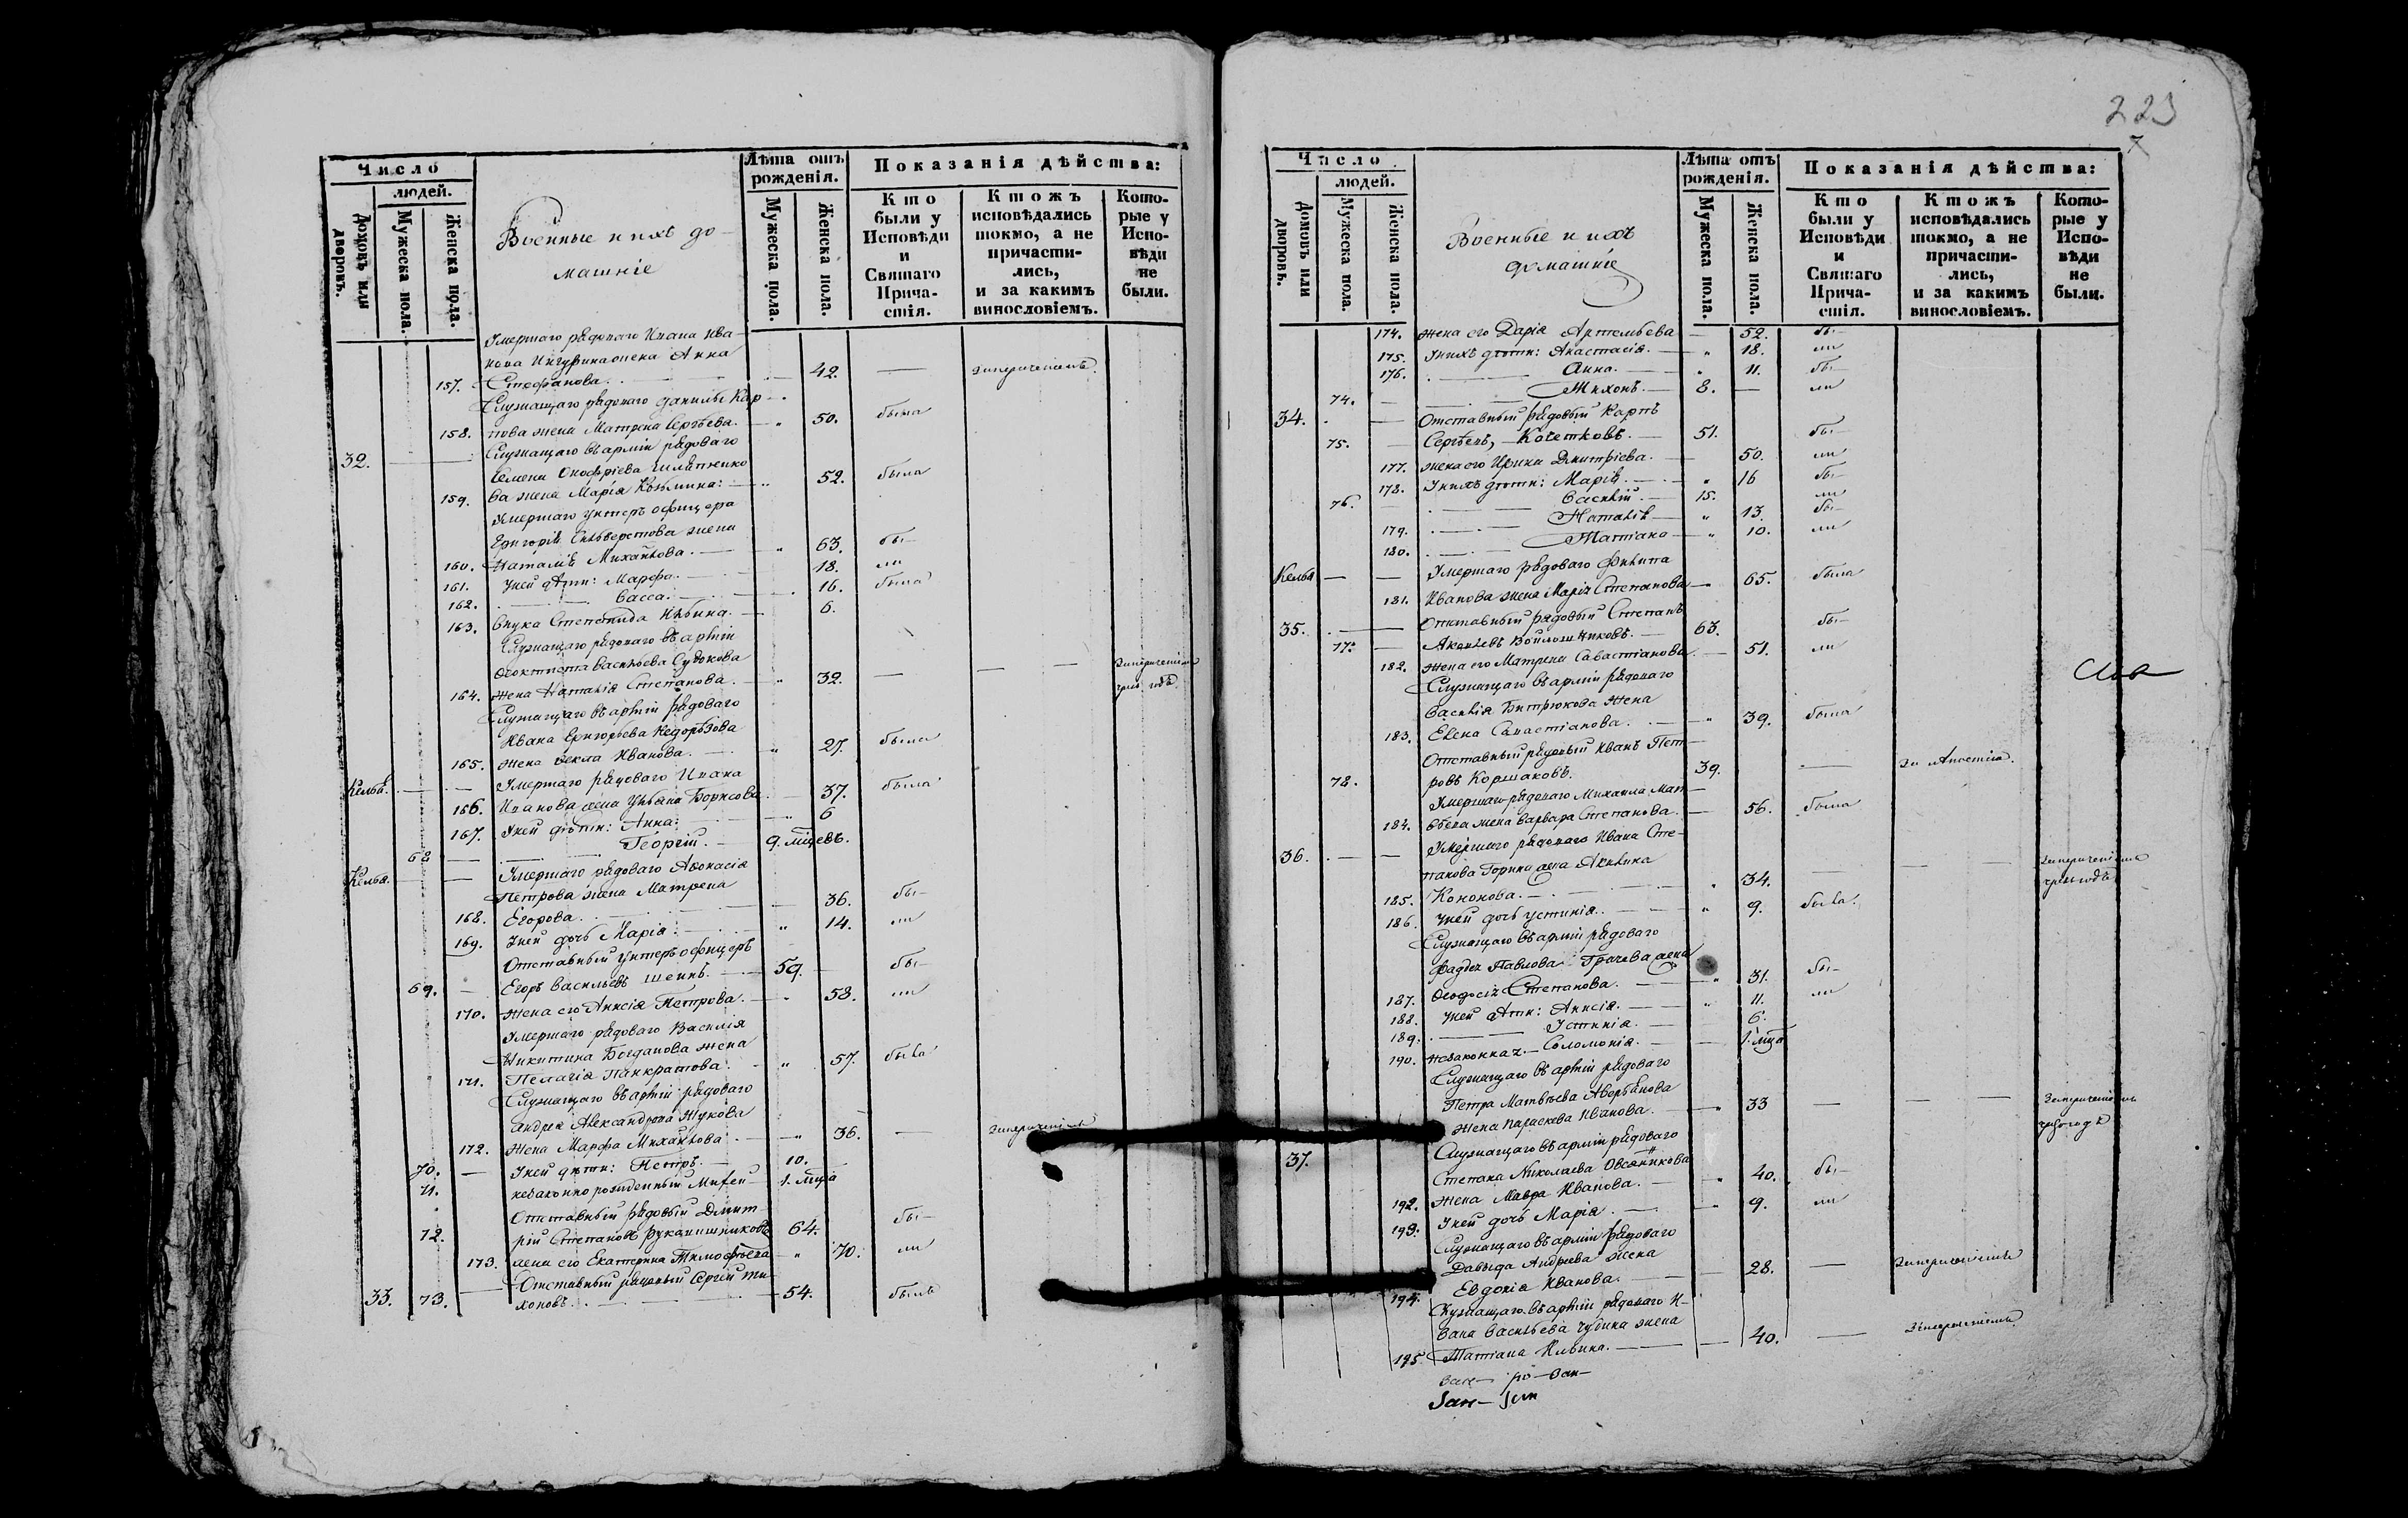 Число
людей.
Домовъ или дворовъ.
Мужеска пола.
Женска пола.
Военные и ихъ до-
машніе
Лѣта отъ
рожденія.
Мужеска пола.
Женска пола.
Показанія дѣйства:
Кто
были у
Исповѣди
и
Святаго
Прича-
стія.
Ктожъ
исповѣдались
токмо, а не
причасти-
лись,
и за какимъ
винословіемъ.
Кото-
рые у
Испо-
вѣди
не
были.
Умершаго рядоваго Ивана Ива-
нова жена Анна
157. Стефанова. 42.
Служащаго рядоваго Данилы Кар-
158. пова жена Матрена Сергѣева. 50. была
32. Служащаго въ арміи рядоваго
Семена Онофріева
159. ва жена Марія Козьмина: 52. была
Умершаго унтеръ офицера
Григорія Сильверстова жена
160. Наталія Михайлова. 63. бы-
161. У ней дѣти: Марфа. 18. ли
162. Васса. 16. была
163. Внука Степанида Ильина. 6.
Служащаго рядоваго въ арміи
Феоктиста Васильева Судокова
164. жена Наталія Степанова. 32.
Служащаго въ арміи рядоваго
Ивана Григорьева
165. жена Фекла Иванова. 27. была
Келья. Умершаго рядоваго Ивана
166. Иванова жена Ульяна Борисова 37. была
167. У ней дѣти: Анна: 6
68 Георгій. 9. мцевъ.
Келья. Умершаго рядоваго Афонасія
Петрова жена Матрена
168. Егорова. 36. бы-
169. У ней дочь Марія: 14. ли
Отставный унтеръ офицеръ
69. Егоръ Васильевъ Шеинъ. 59. бы-
170. жена его Анисія Петрова. 58. ли
Умершаго рядоваго Василія
Никитина Богданова жена
171. Пелагія Панкратова. 57. была
Служащаго въ арміи рядоваго
Андрея Александрова Жукова
172. жена Марфа Михайлова. 36.
70. У ней дѣти: Петръ. 10.
71. незаконно рожденный 1. мца
Отставный рядовый Дмит-
72. рій Степановъ Рукавишниковъ 64. бы-
173. жена его Екатерина Тимофѣева 70. ли
Отставный рядовый Сергій Ти-
33. 73. хоновъ. 54. былъ
223
7
Число
людей.
Домовъ или дворовъ.
Мужеска пола.
Женска пола.
Военные и ихъ
домашніе
Лѣта отъ
рожденія.
Мужеска пола.
Женска пола.
Показанія дѣйства:
Кто
были у
Исповѣди
и
Святаго
Прича-
стія.
Ктожъ
исповѣдались
токмо, а не
причасти-
лись,
и за какимъ
винословіемъ.
Кото-
рые у
Испо-
вѣди
не
были.
174. жена его Дарія Артемьева 52. бы-
175. У нихъ дѣти: Анастасія. 18. ли
176. Анна. 11. бы-
74. Тихонъ. 8. ли
34. Отставный рядовый Карпъ
75. Сергѣевъ, Кочетковъ. 51. бы-
177. жена его Ирина Дмитріева. 50. ли
178. У нихъ дѣти: Марія. 16 бы-
76. Василій. 15. ли
179. Наталія 13. бы-
180. Татіана 10. ли
Келья Умершаго рядоваго Филипа
181. Иванова жена Марія Степанова 65. была
35. Отставный рядовый Степанъ
77. Яковлевъ Войлошниковъ. 63. бы-
182. жена его Матрена Савастіанова 51. ли
Служащаго въ арміи рядоваго
Василія Битрюкова жена
183. Елена Савастіанова. 39. была
Отставный рядовый Иванъ Пет-
78. ровъ Коршаковъ. 39.
Умершаго рядоваго Михаила Мат-
184. вѣева жена Варвара Степанова. 56. была
36. Умершаго рядоваго Ивана Сте-
панова Горина жена Акилина
185. Кононова. 34.
186. У ней дочь Устинія. 9. была.
Служащаго въ арміи рядоваго
Фадея Павлова Грачева жена
187. Феодосія Степанова. 31. бы-
188. У ней дѣти: Анисія. 11. ли
189. Устинія. 6.
190. незаконная. Соломонія. 1. мца
Служащаго въ арміи рядоваго
Петра Матвѣева
жена Параскева Иванова. 33
37. Служащаго въ арміи рядоваго
Степана Николаева Овсяникова
192. жена Мавра Иванова. 40. бы-
193. У ней дочь Марія. 9. ли
Служащаго въ арміи рядоваго
Давыда Андреева жена
194. Евдокія Иванова. 28.
Служащаго въ арміи рядоваго И-
вана Васильева жена
195 Татіана Ильина. 40.